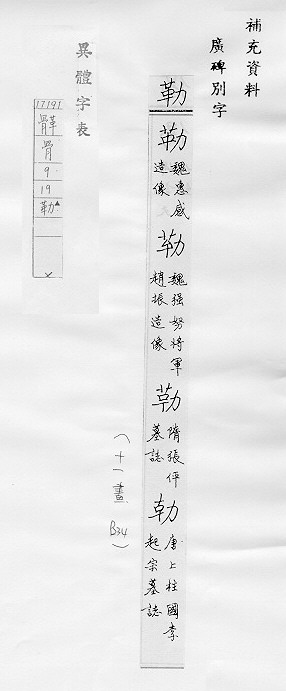 補充資料
廣碑別字
勒
勒 魏惠感
造像
勒 魏强弩將軍
趙振造像
勒 隋張伻
墓誌
勒 唐上柱國李
起宗墓誌
（十一畫 B34）
異體字表
17191
骨
9.
19
勒▲